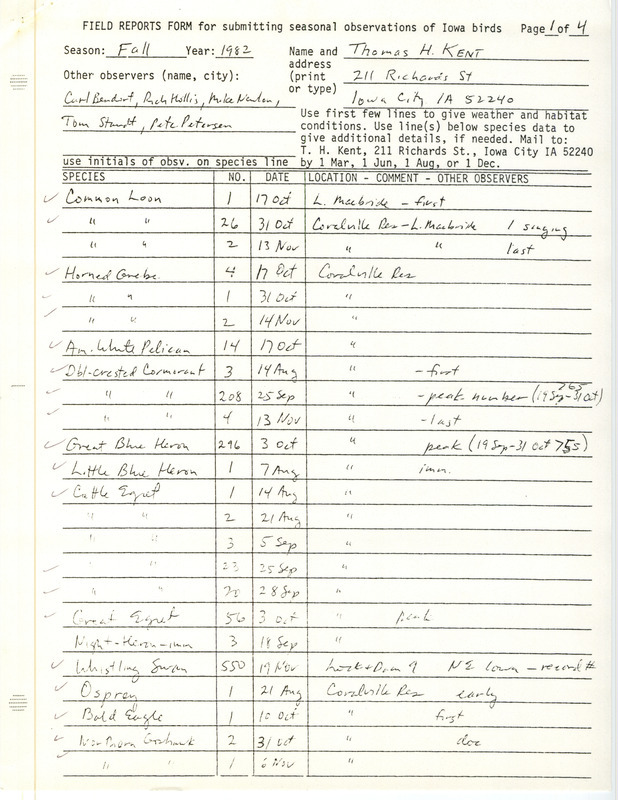 FIELD REPORTS FORM for submitting seasonal observations of Iowa birds Page 1 of 4
Season: Fall Year: 1982 Name and address (print or type) Thomas H. Kent
211 Richards St
Iowa City IA 52240
Other observers (name, city):
Carl Bendorf, Rich Hollis, Mike Newlon,
Tom Staudt, Pete Petersen
Use first few lines to give weather and habitat
conditions. Use line(s) below species data to
give additional details, if needed. Mail to:
T. H. Kent, 211 Richards St., Iowa City IA 52240
use initials of obsv. on species line by 1 Mar, 1 Jun, 1 Aug, or 1 Dec.
SPECIES NO. DATE LOCATION - COMMENT - OTHER OBSERVERS
✓ Common Loon 1 17 Oct L. Macbride - first
✓ " " 26 31 Oct Coralville Res - L. Macbride 1 singing
" " 2 13 Nov " " last
✓ Horned Grebe 4 17 Oct Coralville Res
✓ " " 1 31 Oct "
✓ " " 2 14 Nov "
✓ Am. White Pelican 14 17 Oct "
✓ Dbl-crested Cormorant 3 14 Aug " - first
✓ " " 208 25 Sep " - peak number (19 Sep - 31 Oct) 765
✓ " " 4 13 Nov " - last
✓ Great Blue Heron 296 3 Oct " peak (19 Sep - 31 Oct 755)
✓ Little Blue Heron 1 7 Aug " imm.
✓ Cattle Egret 1 14 Aug "
" " 2 21 Aug "
" " 3 5 Sep "
✓ " " 23 25 Sep "
✓ " " 20 28 Sep "
✓ Great Egret 56 3 Oct " peak
Night-Heron-imm 3 18 Sep "
✓ Whistling Swan 550 17 Nov Lock + Dam 9 NE Iowa - record #
✓ Osprey 1 21 Aug Coralville Res early
✓ Bald Eagle 1 10 Oct " first
✓ Northern Goshawk 2 31 Oct " doc
✓ " " 1 6 Nov "